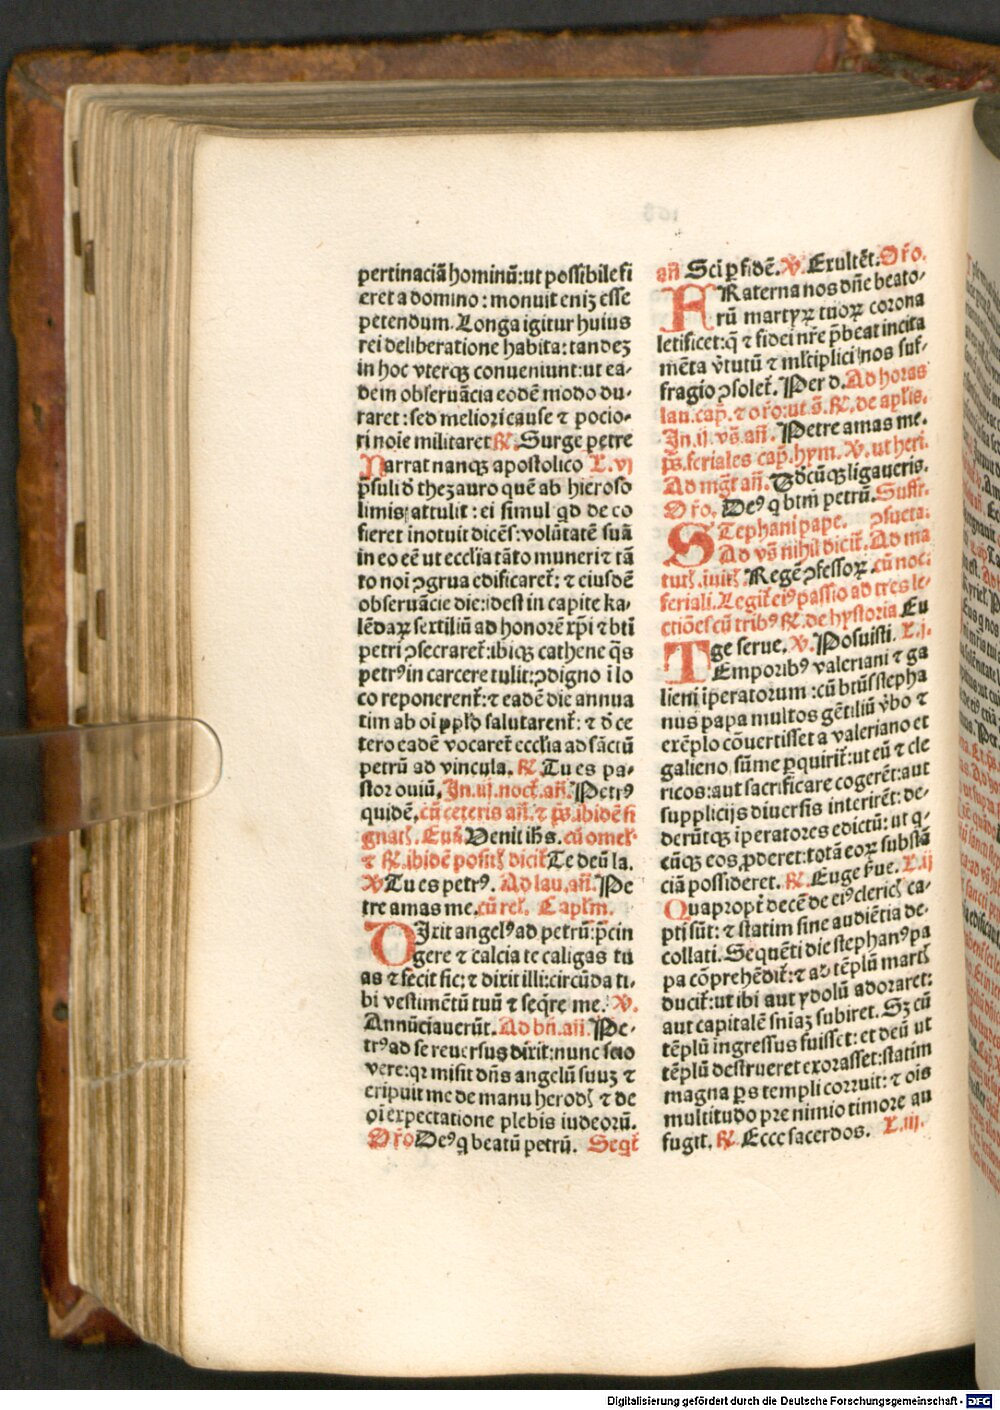 pertinaciã hominũ: ut possibile fi
eret a domino: monuit eniʒ esse
petendum. Longa igitur huius
rei deliberatione habita: tandeʒ
in hoc vterqʒ conueniunt: ut ea-
dem obseruãcia eodẽ modo du-
raret: sed meliori cause ⁊ pocio-
ri noĩe militaret ℟. Surge petre
Narrat nanqʒ apostolico L. vj
p̃suli đ thezauro quẽ ab hieroso
limis attulit: ei simul qđ de eo
fieret inotuit dicẽs: volũtatẽ suã
in eo eẽ ut ecclĩa tãto muneri ⁊ tã
to noĩ ꝯgrua edificaret᷑: ⁊ eiusdẽ
obseruãcie die: idest in capite ka-
lẽdaꝝ sextiliũ ad honorẽ xp̃i ⁊ bti
petri ꝯsecraret᷑: ibiqʒ cathene q̃s
petrꝰ in carcere tulit: ꝯdigno ĩ lo
co reponerent᷑: ⁊ eadẽ die annua
tim ab oĩ pplo salutarent᷑: ⁊ đ ce
tero eadẽ vocaret᷑ ecclĩa ad sãctũ
petrũ ad vincula. ℟. Tu es pa-
stor ouiũ. In .iij. noct᷑. añ. Petrꝰ
quidẽ. cũ ceteris añ. ⁊ p̃s. ibidẽ si
gnatꝭ. Euã Venit ihs. cũ omel᷑
⁊ ℟. ibidẽ positꝭ dicit᷑ Te deũ la.
℣ Tu es petrꝰ. Ad lau. añ. Pe
tre amas me. cũ rel᷑. Caplm̃.
DIxit angelꝰ ad petrũ: p̃cin
gere ⁊ calcia te caligas tu
as ⁊ fecit sic; ⁊ dixit illi: circũda ti-
bi vestimẽtũ tuũ ⁊ seqr̃e me. ℣.
Annũciauerũt. Ad bñ. añ. Pe-
trꝰ ad se reuersus dixit: nunc scio
vere: qꝛ misit dñs angelũ suuʒ ⁊
eripuit me de manu herodꝭ ⁊ de
oĩ expectatione plebis iudeorũ.
Or̃o Deꝰ q beatũ petrũ. Seqt᷑
añ Scĩ ꝑ fidẽ. ℣. Exultẽt. Or̃o.
FRaterna nos dñe beato-
rũ martyꝝ tuoꝝ corona
letificet: q̃ ⁊ fidei nr̃e p̃beat incita
mẽta v̓tutũ ⁊ mĺtiplici nos suf-
fragio ꝯsolet᷑. Per d. Ad horas
lau. cap̃. ⁊ or̃o: ut s̃. ℟. de aplĩs.
In .ij. vs̃. añ. Petre amas me.
p̃s. feriales cap̃. hym. ℣. ut heri.
Ad mg̃t᷑ añ. Qđcũqʒ ligaueris.
Or̃o. Deꝰ q btm̃ petrũ. Suffr̃.
STephani pape. ꝯsueta:
Ad vs̃ nihil dicit᷑. Ad ma
tutꝭ. inuitꝭ. Regẽ ꝯfessoꝝ. cũ noc.
feriali. Legit᷑ eiꝰ passio ad tres le-
ctiões cũ tribꝰ ℟. de hystoria Eu
ge serue. ℣. Posuisti. L. j.
TEmporibꝰ valeriani ⁊ ga
lieni ĩperatorum: cũ btũs stepha
nus papa multos gẽtiliũ v̓bo ⁊
exẽplo cõuertisset a valeriano et
galieno, sũme ꝑquirit᷑: ut eũ ⁊ cle
ricos: aut sacrificare cogerẽt: aut
supplicijs diuersis interirẽt: de-
derũtqʒ iperatores edictũ: ut q-
cũqʒ eos ꝓderet: totã eoꝝ substã
ciã possideret. ℟. Euge s̃ue. L. ij
Quapropt᷑ decẽ de eiꝰ clericꝭ ca-
pti sũt: ⁊ statim sine audiẽtia de-
collati. Sequẽti die stephanꝰ pa
pa cõprehẽdit᷑: ⁊ ad tẽplũ martꝭ
ducit᷑: ut ibi aut ydolũ adoraret:
aut capitalẽ sniaʒ subiret. Sʒ cũ
tẽplũ ingressus fuisset: et deũ ut
tẽplũ destrueret exorasset: statim
magna ꝑs templi corruit: ⁊ oĩs
multitudo pre nimio timore au
fugit. ℟. Ecce sacerdos. L. iij.
Digitalisierung gefördert durch die Deutsche Forschungsgemeinschaft - DFG